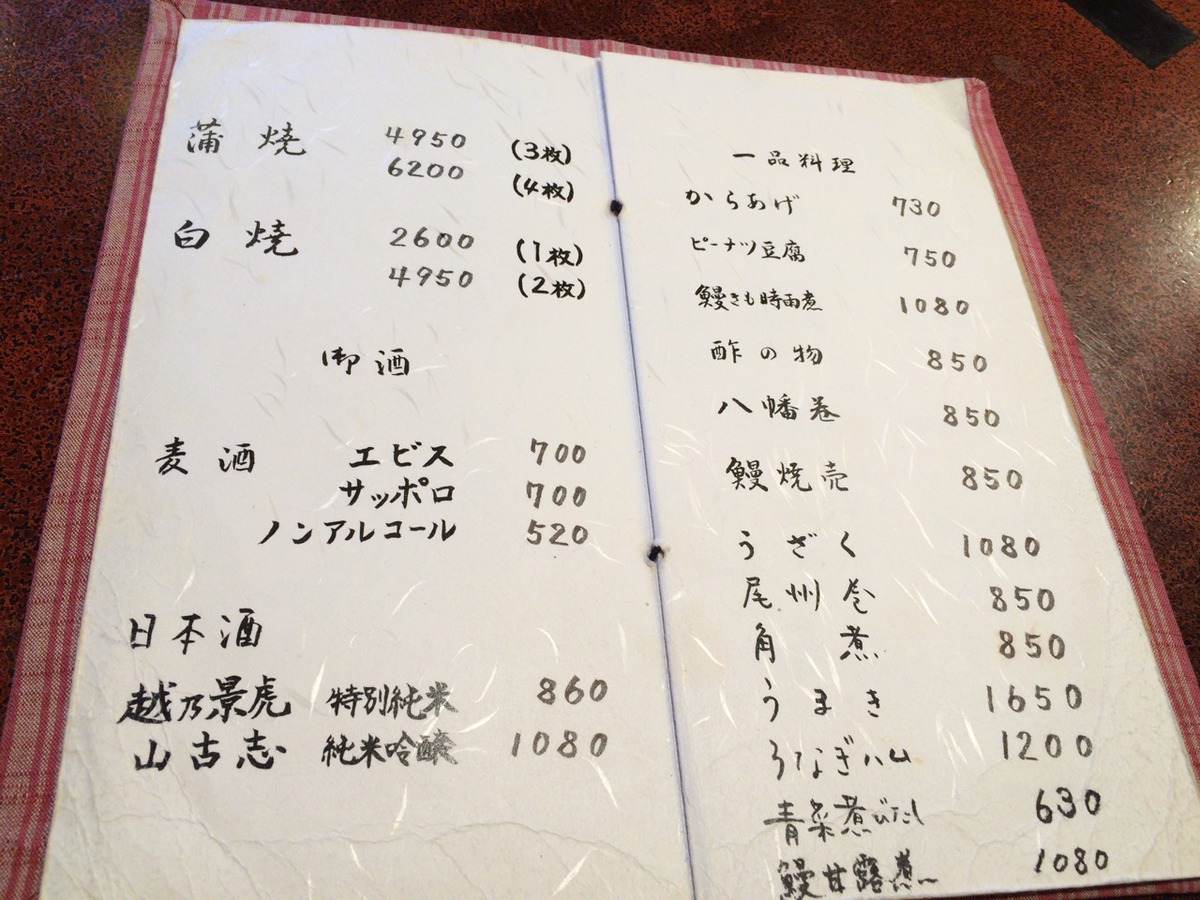 蒲焼 4950 (3枚)
6200 (4枚)
白焼 2600 (1枚)
4950 (2枚)
御酒
麦酒 エビス 700
サッポロ 700
ノンアルコール 520
日本酒
越乃景虎 特別純米 860
山古志 純米吟醸 1080
一品料理
からあげ 730
ピーナツ豆腐 750
鰻きも時雨煮 1080
酢の物 850
八幡巻 850
鰻焼売 850
うざく 1080
尾州巻 850
角煮 850
うまき 1650
うなぎハム 1200
青菜煮びたし 630
鰻甘露煮 1080